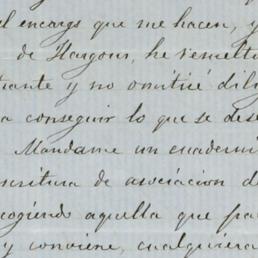 el encargo que me hacen, y
de Hargous, he remelt
tante y no omitiré dili
a conseguir lo que se dese
Mandame un cuaderni
scritura de asociacion d
cogiendo aquella que pa
y conviene, cualquiera